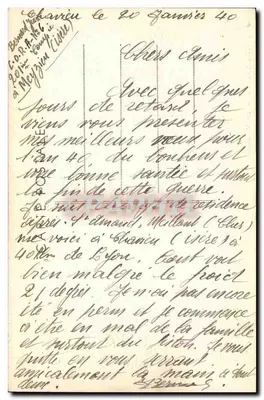 Chavieu le 20 Janvier 40
Chers Amis
Avec quelques
jours de retard, je
viens vous presenter
mes meilleurs vœux pour
l'an 40 du bonheur et
une bonne santée et surtout
la fin de cette guerre.
Je suis changé de residence
après St Amand, Meillant (Cher)
me voici à Chavieu (isère) à
40 km de Lyon. tout va
bien malgré le froid
21 degrés. Je n'ai pas encore
été en perm et je commence
a être en mal de la famille
et surtout du fiston. Je vous
quitte en vous serrant
amicalement la main de tout
deux.
Meyzieu (Isère)